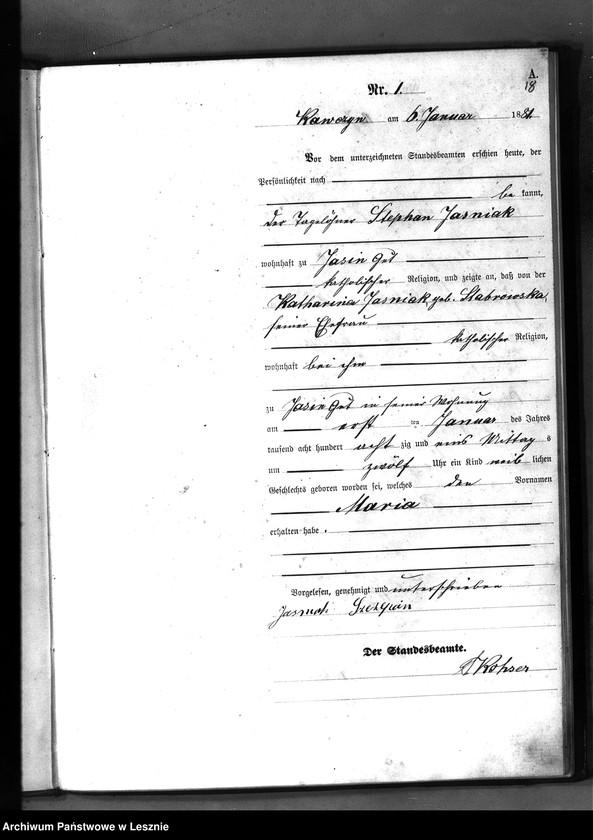 A.
18
Nr. 1.
Kawczyn am 6. Januar 1881
Vor dem unterzeichneten Standesbeamten erschien heute, der
Persönlichkeit nach
be kannt,
der Tagelöhner Stephan Jasniak
wohnhaft zu Jasin Gut
katholischer Religion, und zeigte an, daß von der
Katharina Jasniak, geb. Stabrowska,
seiner Ehefrau
katholischer Religion,
wohnhaft bei ihm
zu Jasin Gut in seiner Wohnung
am erst ten Januar des Jahres
tausend acht hundert acht zig und eins Mittag s
um zwölf Uhr ein Kind weib lichen
Geschlechts geboren worden sei, welches den Vornamen
Maria
erhalten habe.
Vorgelesen, genehmigt und unterschrieben
Der Standesbeamte.
Archiwum Państwowe w Lesznie